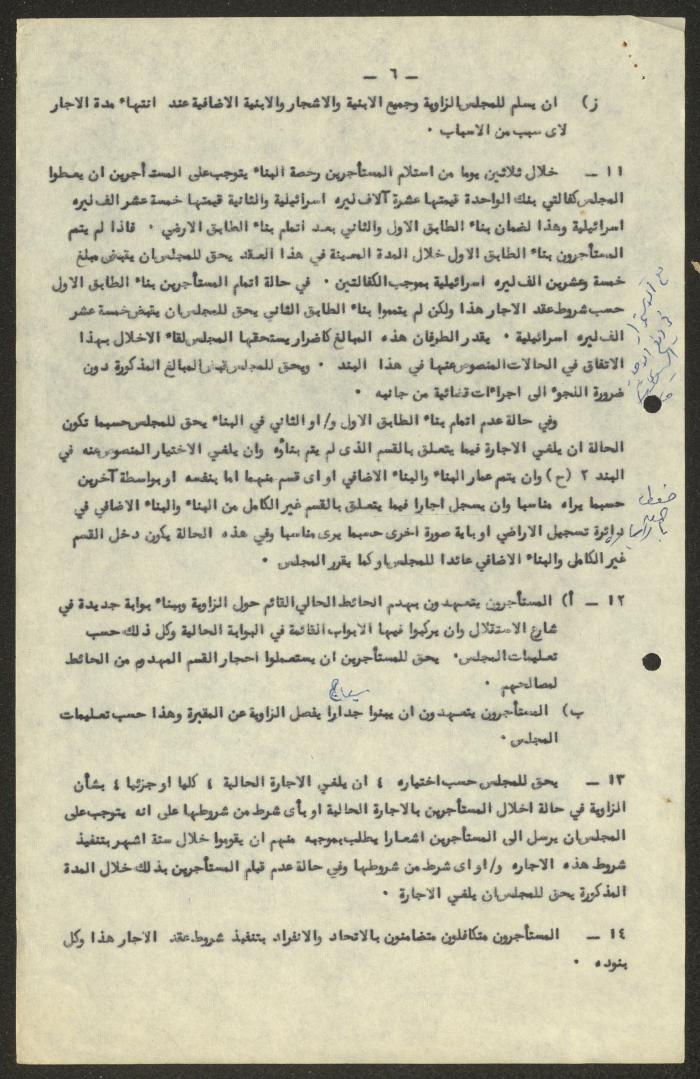 — ٦ —
ز) ان يسلم للمجلس الزاوية وجميع الابنية والاشجار والابنية الاضافية عند انتهاء مدة الاجار
لاى سبب من الاسباب ٠
١١ — خلال ثلاثين يوما من استلام المستأجرين رخصة البناء يتوجب على المستأجرين ان يعطوا
المجلس كفالتي بنك الواحدة قيمتها عشرة آلاف ليره اسرائيلية والثانية قيمتها خمسة عشر الف ليره
اسرائيلية وهذا لضمان بناء الطابق الاول والثاني بعد اتمام بناء الطابق الارضي ٠ فاذا لم يتم
المستأجرون بناء الطابق الاول خلال المدة المعينة في هذا العقد يحق للمجلس ان يقبض مبلغ
خمسة وعشرين الف ليره اسرائيلية بموجب الكفالتين ٠ في حالة اتمام المستأجرين بناء الطابق الاول
حسب شروط عقد الاجار هذا ولكن لم يتمموا بناء الطابق الثاني يحق للمجلس ان يقبض خمسة عشر
الف ليره اسرائيلية ٠ يقدر الطرفان هذه المبالغ كاضرار يستحقها المجلس لقاء الاخلال بهذا
الاتفاق في الحالات المنصوص عنها في هذا البند ٠ ويحق للمجلس قبض المبالغ المذكورة دون
ضرورة اللجوء الى اجراءات قضائية من جانبه ٠
وفي حالة عدم اتمام بناء الطابق الاول و/او الثاني في البناء يحق للمجلس حسبما تكون
الحالة ان يلغي الاجارة فيما يتعلق بالقسم الذى لم يتم بناؤه وان يلغي الاختيار المنصوص عنه في
البند ٢ (ح) وان يتم عمار البناء والبناء الاضافي او اى قسم منهما اما بنفسه او بواسطة آخرين
حسبما يراه مناسبا وان يسجل اجارا فيما يتعلق بالقسم غير الكامل من البناء والبناء الاضافي في
دائرة تسجيل الاراضي او باية صورة اخرى حسبما يرى مناسبا وفي هذه الحالة يكون دخل القسم
غير الكامل والبناء الاضافي عائدا للمجلس او كما يقرر المجلس ٠
١٢ — أ) المستأجرون يتعهدون بهدم الحائط الحالي القائم حول الزاوية وببناء بوابة جديدة في
شارع الاستقلال وان يركبوا فيها الابواب القائمة في البوابة الحالية وكل ذلك حسب
تعليمات المجلس٠ يحق للمستأجرين ان يستعملوا احجار القسم المهدوم من الحائط
لمصالحهم ٠
سياج
ب) المستأجرون يتعهدون ان يبنوا جدارا يفصل الزاوية عن المقبرة وهذا حسب تعليمات
المجلس٠
١٣ — يحق للمجلس حسب اختياره ٤ ان يلغي الاجارة الحالية ٤ كليا او جزئيا ٤ بشأن
الزاوية في حالة اخلال المستأجرين بالاجارة الحالية او بأى شرط من شروطها على انه يتوجب على
المجلس ان يرسل الى المستأجرين اشعارا يطلب بموجبه منهم ان يقوموا خلال ستة اشهر بتنفيذ
شروط هذه الاجاره و/او اى شرط من شروطها وفي حالة عدم قيام المستأجرين بذلك خلال المدة
المذكورة يحق للمجلس ان يلغي الاجارة ٠
١٤ — المستأجرون متكافلون متضامنون بالاتحاد والانفراد بتنفيذ شروط عقد الاجار هذا وكل
بنوده ٠